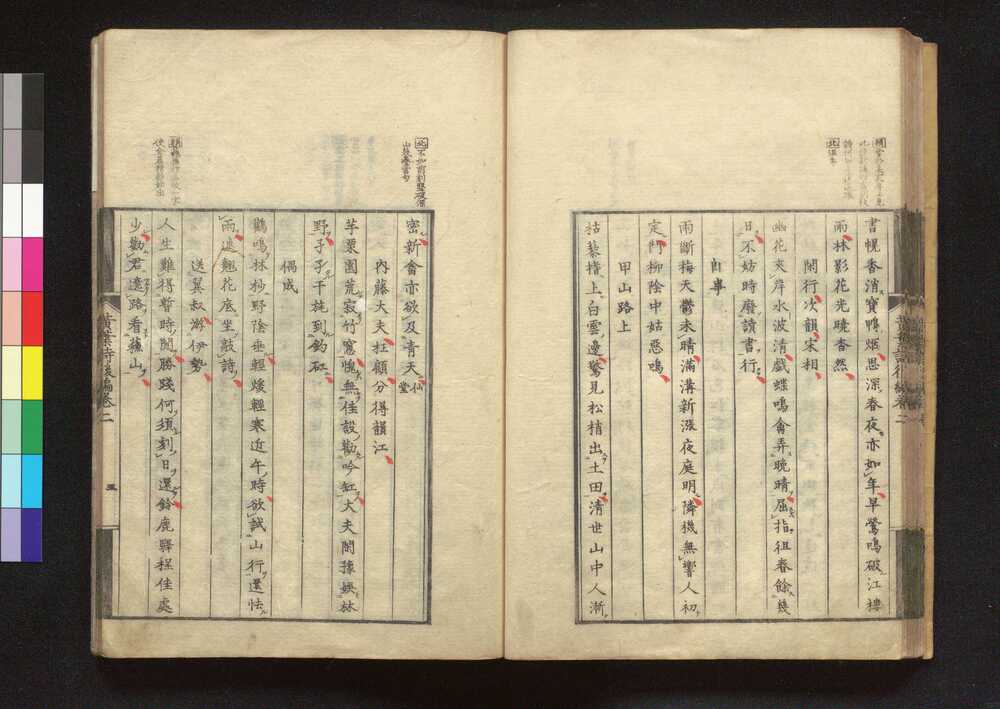 書幌香消寶鴨烟思深春夜亦如年早鶯鳴破江樓
雨林影花光曉杳然
閑行次韻宋相
幽花夾岸水波清戲蝶鳴禽弄晚晴屈指徂春餘幾
日不妨時廢讀書行
即事
雨斷梅天鬱未晴滿溝新漲夜庭明隣機無響人初
定門柳陰中姑惡鳴
甲山路上
枯藜揩上白雲邊驚見松梢出土田清世山中人漸
密新畬亦欲及青天
仙堂
內藤大夫枉顧分得韻江
芋栗園荒寂竹窓愧無佳設勸吟缸大夫閑豫娛林
野孑孑干旄到釣矼
偶成
鸛鳴林杪野陰垂輕煖輕寒近午時欲試山行還怯
雨遶翹花底坐敲詩
送翼叔游伊勢
人生難得暫時閑勝踐何須刻日還鈴鹿驛程佳處
少勸君遶路看蘓山
黄葉夕陽
五